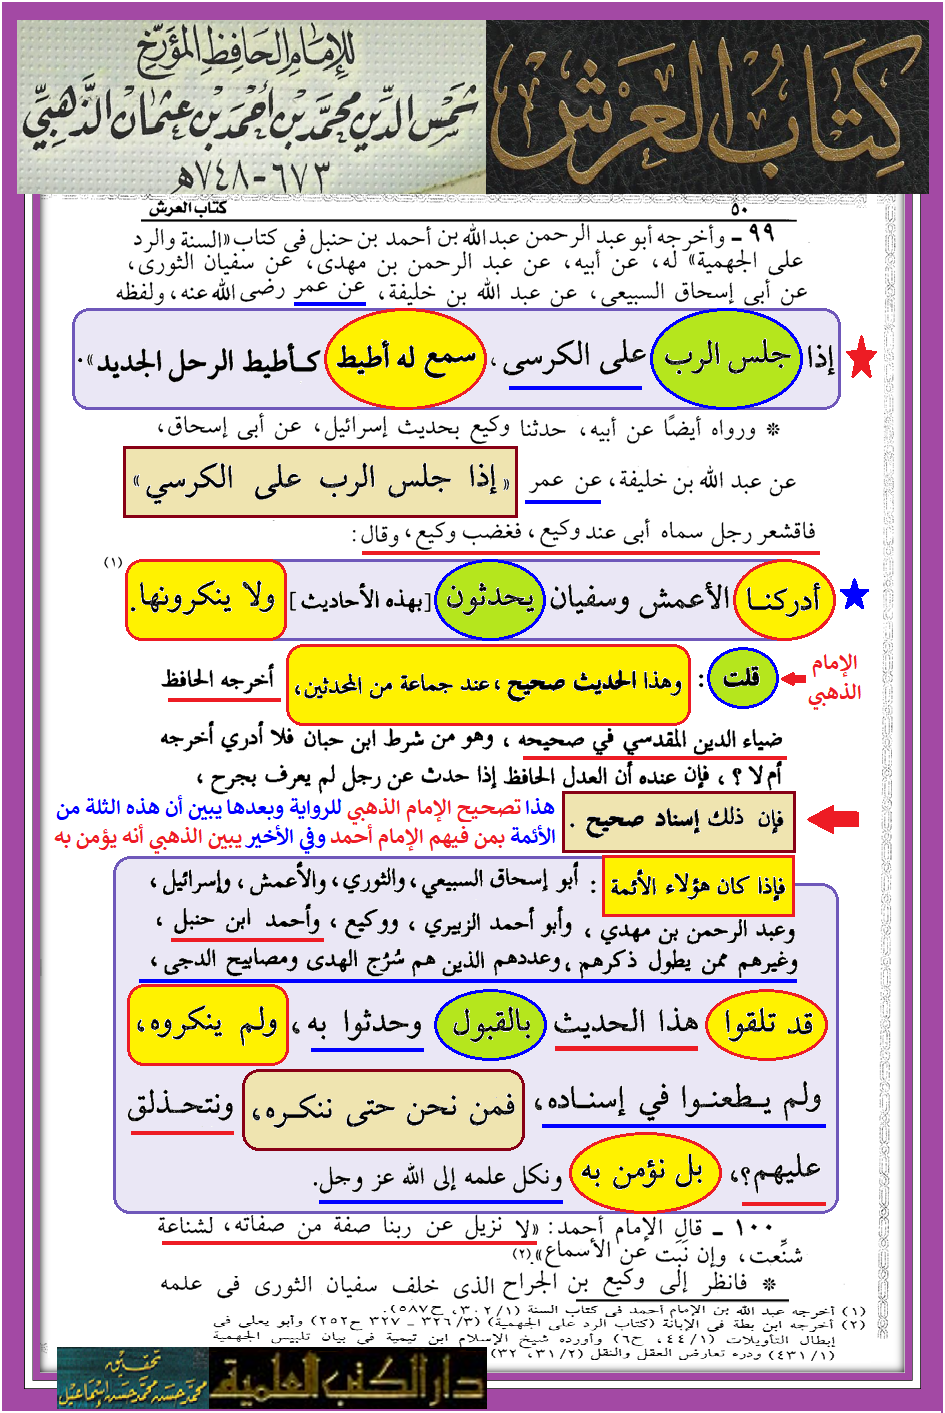 كتاب العرش
للإمام الحافظ المؤرخ
شمس الدين محمد بن أحمد بن عثمان الذهبي
٦٧٣-٧٤٨هـ
٥٠
كتاب العرش
٩٩ - وأخرجه أبو عبد الرحمن عبد الله بن أحمد بن حنبل فى كتاب «السنة والرد
على الجهمية» له، عن أبيه، عن عبد الرحمن بن مهدى، عن سفيان الثورى،
عن أبى إسحاق السبيعى، عن عبد الله بن خليفة، عن عمر رضى الله عنه، ولفظه
إذا جلس الرب على الكرسى، سمع له أطيط كأطيط الرحل الجديد».
* ورواه أيضًا عن أبيه، حدثنا وكيع بحديث إسرائيل، عن أبى إسحاق،
عن عبد الله بن خليفة، عن عمر «إذا جلس الرب على الكرسي»
فاقشعر رجل سماه أبى عند وكيع، فغضب وكيع، وقال:
أدركنا الأعمش وسفيان يحدثون [بهذه الأحاديث] ولا ينكرونها. (١)
الإمام
الذهبي
قلت: وهذا الحديث صحيح، عند جماعة من المحدثين، أخرجه الحافظ
ضياء الدين المقدسي في صحيحه، وهو من شرط ابن حبان فلا أدري أخرجه
أم لا؟، فإن عنده أن العدل الحافظ إذا حدث عن رجل لم يعرف بجرح،
فإن ذلك إسناد صحيح.
هذا تصحيح الإمام الذهبي للرواية وبعدها يبين أن هذه الثلة من
الأئمة بمن فيهم الإمام أحمد وفي الأخير يبين الذهبي أنه يؤمن به
فإذا كان هؤلاء الأئمة: أبو إسحاق السبيعي، والثوري، والأعمش، وإسرائيل،
وعبد الرحمن بن مهدي، وأبو أحمد الزبيري، ووكيع، وأحمد ابن حنبل،
وغيرهم ممن يطول ذكرهم، وعددهم الذين هم سُرُج الهدى ومصابيح الدجى،
قد تلقوا هذا الحديث بالقبول وحدثوا به، ولم ينكروه،
ولم يطعنوا في إسناده، فمن نحن حتى ننكره، ونتحذلق
عليهم؟، بل نؤمن به ونكل علمه إلى الله عز وجل.
١٠٠ - قال الإمام أحمد: «لا نزيل عن ربنا صفة من صفاته، لشناعة
شنِّعت، وإن نَبَت عن الأسماع»(٢)
* فانظر إلى وكيع بن الجراح الذى خلف سفيان الثورى فى علمه
(١) أخرجه عبد الله بن الإمام أحمد فى كتاب السنة (٣٠٢/١، ح٥٨٧).
(٢) أخرجه ابن بطة فى الإبانة (كتاب الرد على الجهمية) (٣٢٦/٣ - ٣٢٧ ح٢٥٢) وأبو يعلى فى
إبطال التأويلات (٤٤/١، ح٦) وأورده شيخ الإسلام ابن تيمية في بيان تلبيس الجهمية
(٤٣١/١) ودرء تعارض العقل والنقل (٣١/٢، ٣٢)
دار الكتب العلمية
تحقيق
محمد حسن محمد حسن إسماعيل